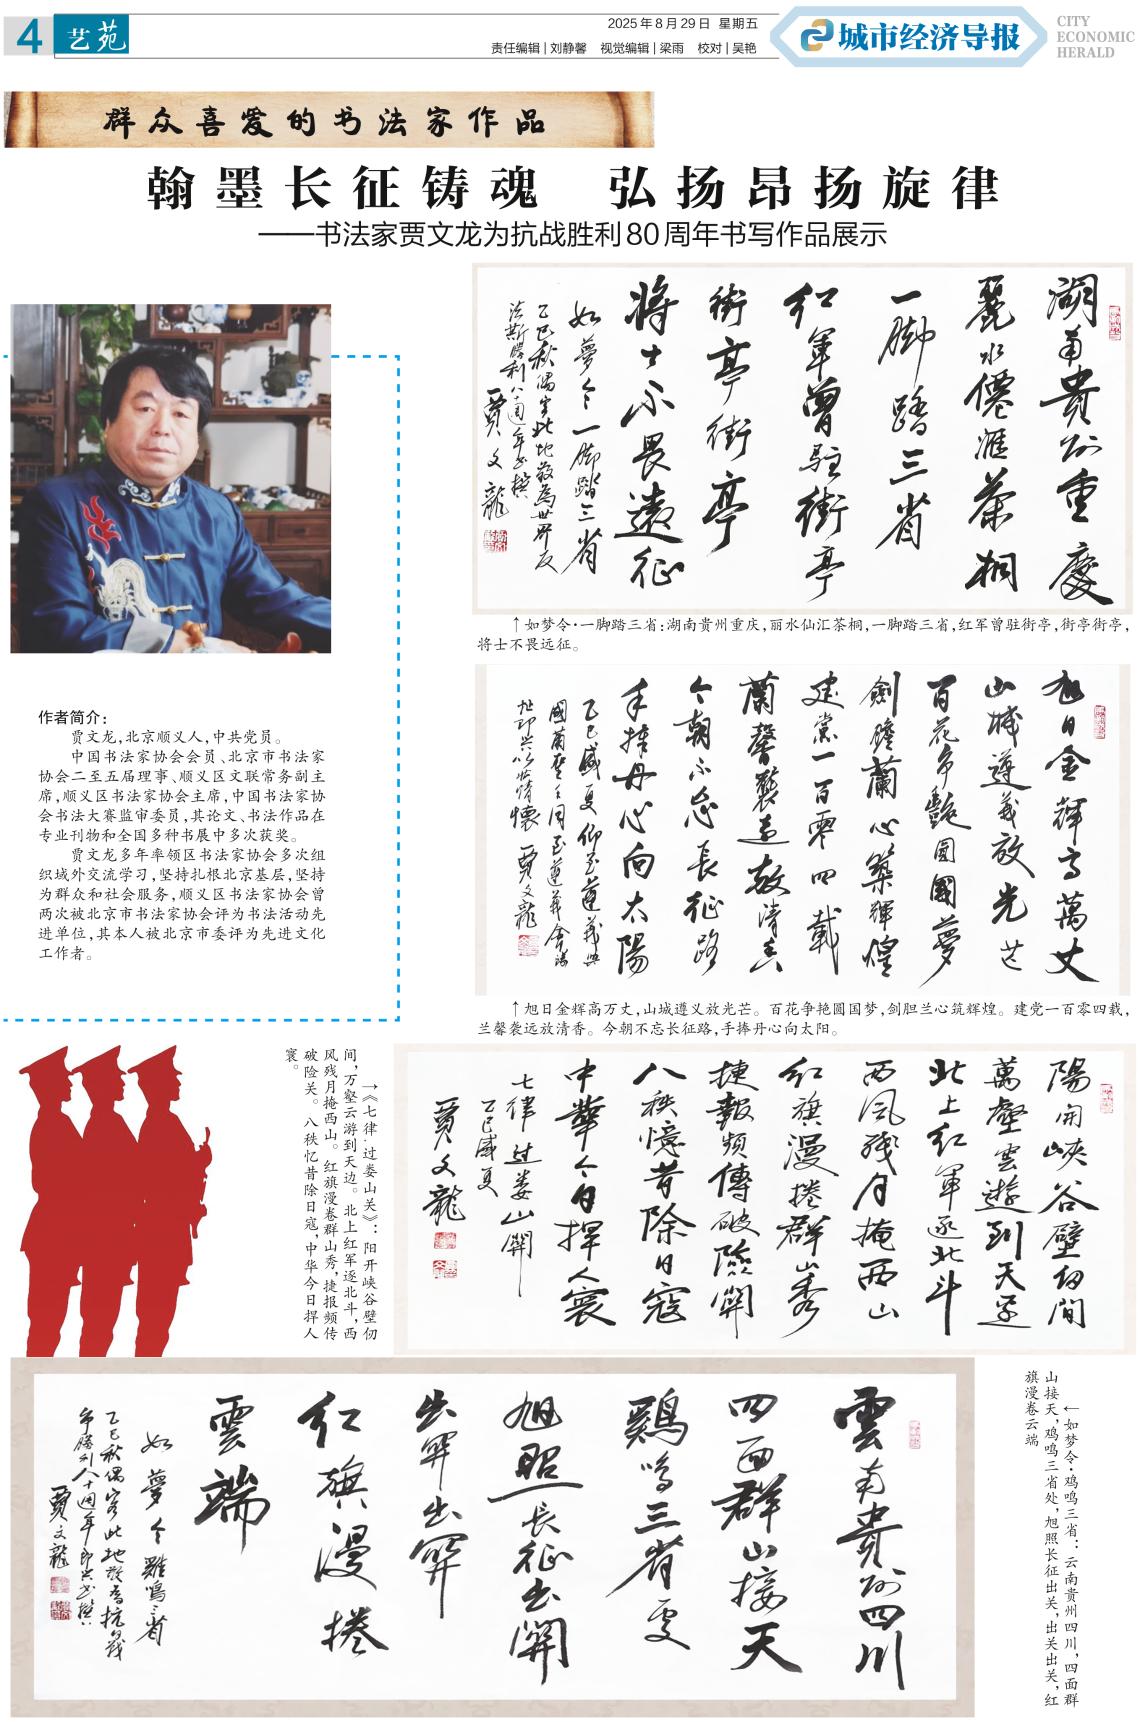 4 艺苑
2025年8月29日 星期五
责任编辑|刘静馨 视觉编辑|梁雨 校对|吴艳
城市经济导报
CITY
ECONOMIC
HERALD
群众喜爱的书法家作品
翰墨长征铸魂 弘扬昂扬旋律
——书法家贾文龙为抗战胜利80周年书写作品展示
湖南贵州重慶
麗水僊滙茶桐
一脚踏三省
红軍曾駐街亭
街亭街亭
将士不畏遠征
如夢令一脚踏三省
乙巳秋偶至此地敬為世界反
法斯勝利八十周年书撰
賈文龍
↑如梦令·一脚踏三省:湖南贵州重庆,丽水仙汇茶桐,一脚踏三省,红军曾驻街亭,街亭街亭,
将士不畏远征。
作者简介:
贾文龙,北京顺义人,中共党员。
中国书法家协会会员、北京市书法家
协会二至五届理事、顺义区文联常务副主
席,顺义区书法家协会主席,中国书法家协
会书法大赛监审委员,其论文、书法作品在
专业刊物和全国多种书展中多次获奖。
贾文龙多年率领区书法家协会多次组
织域外交流学习,坚持扎根北京基层,坚持
为群众和社会服务,顺义区书法家协会曾
两次被北京市书法家协会评为书法活动先
进单位,其本人被北京市委评为先进文化
工作者。
旭日金輝高萬丈
山城遵义放光芒
百花争艷圆國夢
劍膽蘭心築輝煌
建党一百零四載
蘭馨襲遠放清香
今朝不忘長征路
手捧丹心向太陽
賈文龍
↑旭日金辉高万丈,山城遵义放光芒。百花争艳圆国梦,剑胆兰心筑辉煌。建党一百零四载,
兰馨袭远放清香。今朝不忘长征路,手捧丹心向太阳。
陽開峽谷壁仞間
萬壑雲遊到天邊
北上红軍逐北斗
西风残月掩西山
红旗漫捲群山秀
捷報频傳破險關
八秩憶昔除日寇
中華今日捍人寰
七律 过娄山關
乙巳盛夏
賈文龍
→《七律·过娄山关》:阳开峡谷壁仞
间,万壑云游到天边。北上红军逐北斗,西
风残月掩西山。红旗漫卷群山秀,捷报频传
破险关。八秩忆昔除日寇,中华今日捍人
寰。
雲南贵州四川
四面群山接天
鷄鸣三省處
旭照長征出關
出關出關
红旗漫捲
雲端
如夢令 雞鳴三省
賈文龍
←如梦令·鸡鸣三省:云南贵州四川,四面群
山接天,鸡鸣三省处,旭照长征出关,出关出关,红
旗漫卷云端